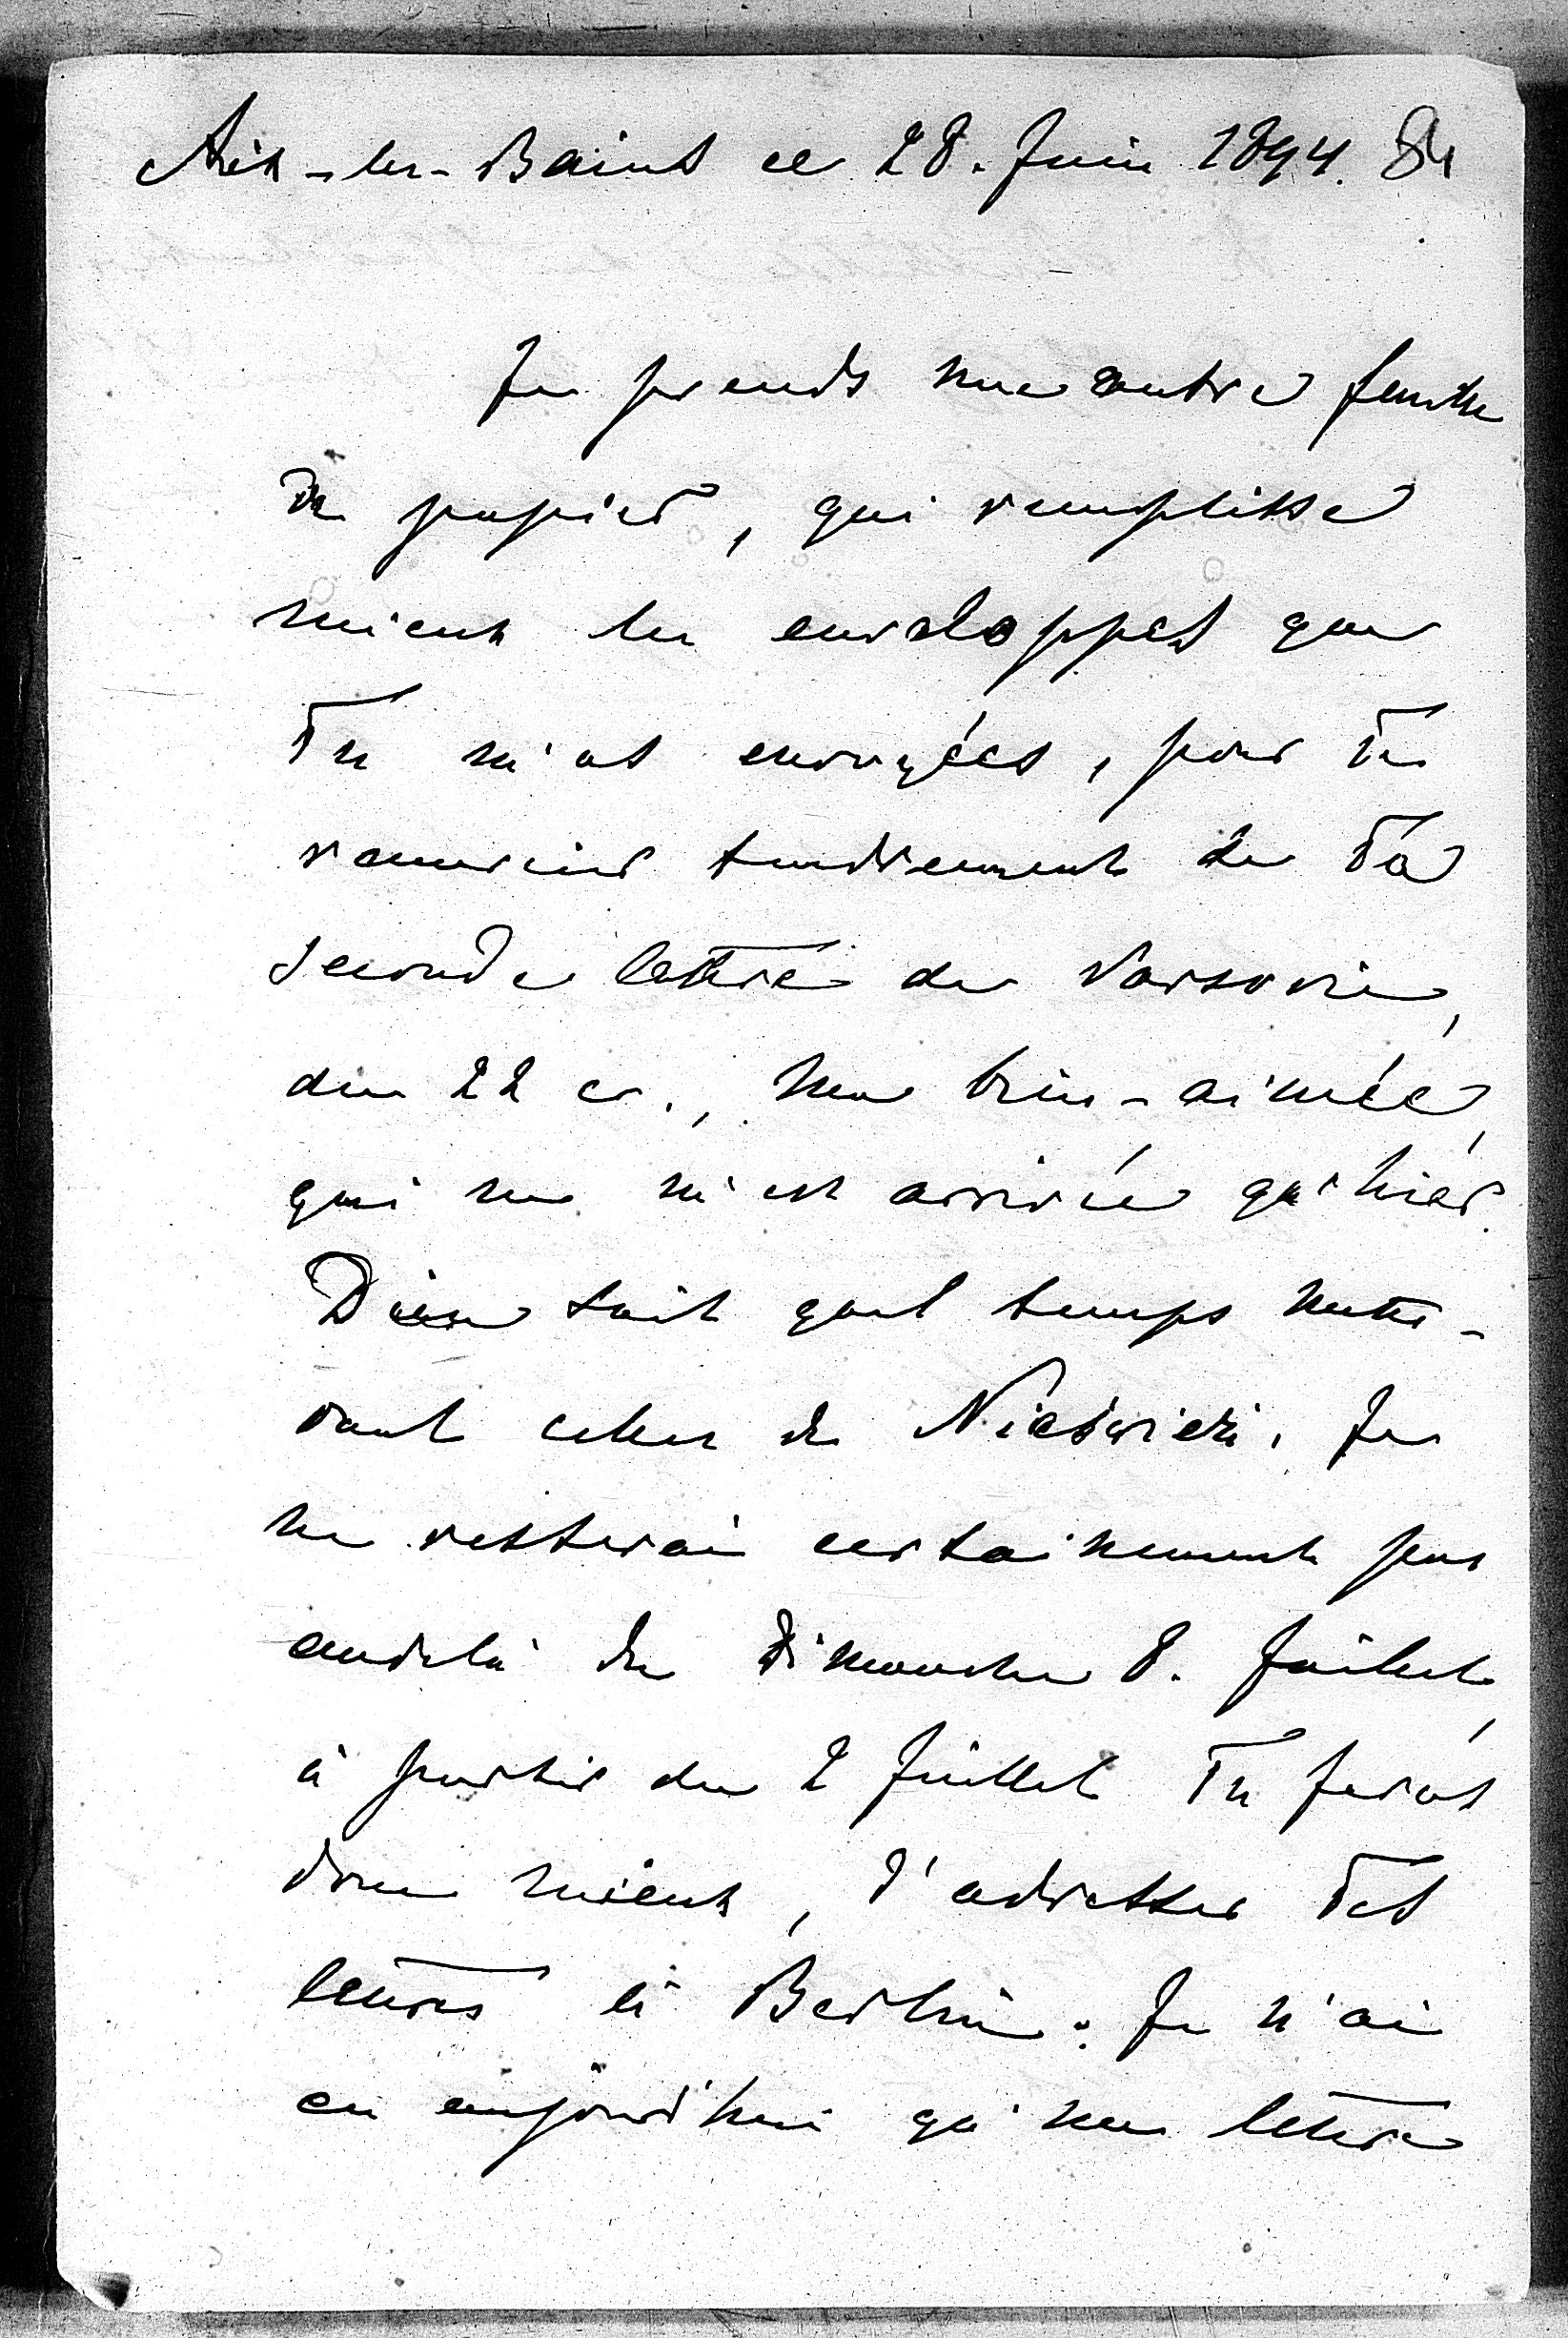 Aix-les-Bains ce 28. Juin 1894. 84
Je prends une autre feuille
de papier, qui remplisse
mieux les enveloppes que
Tu m'as envoyées, pour Te
remercier tendrement de Ta
seconde lettre de Varsovie,
du 22 cr., ma bien-aimée,
qui ne m'est arrivée qu'hier.
Dieu sait quel temps mett-
ront celles de Nieśwież. Je
ne resterai certainement pas
audelà du Dimanche 8. Juillet,
à partir du 2 Juillet Tu feras
donc mieux, d'adresser Tes
lettres à Berlin. Je n'ai
eu aujourd'hui qu'une lettre